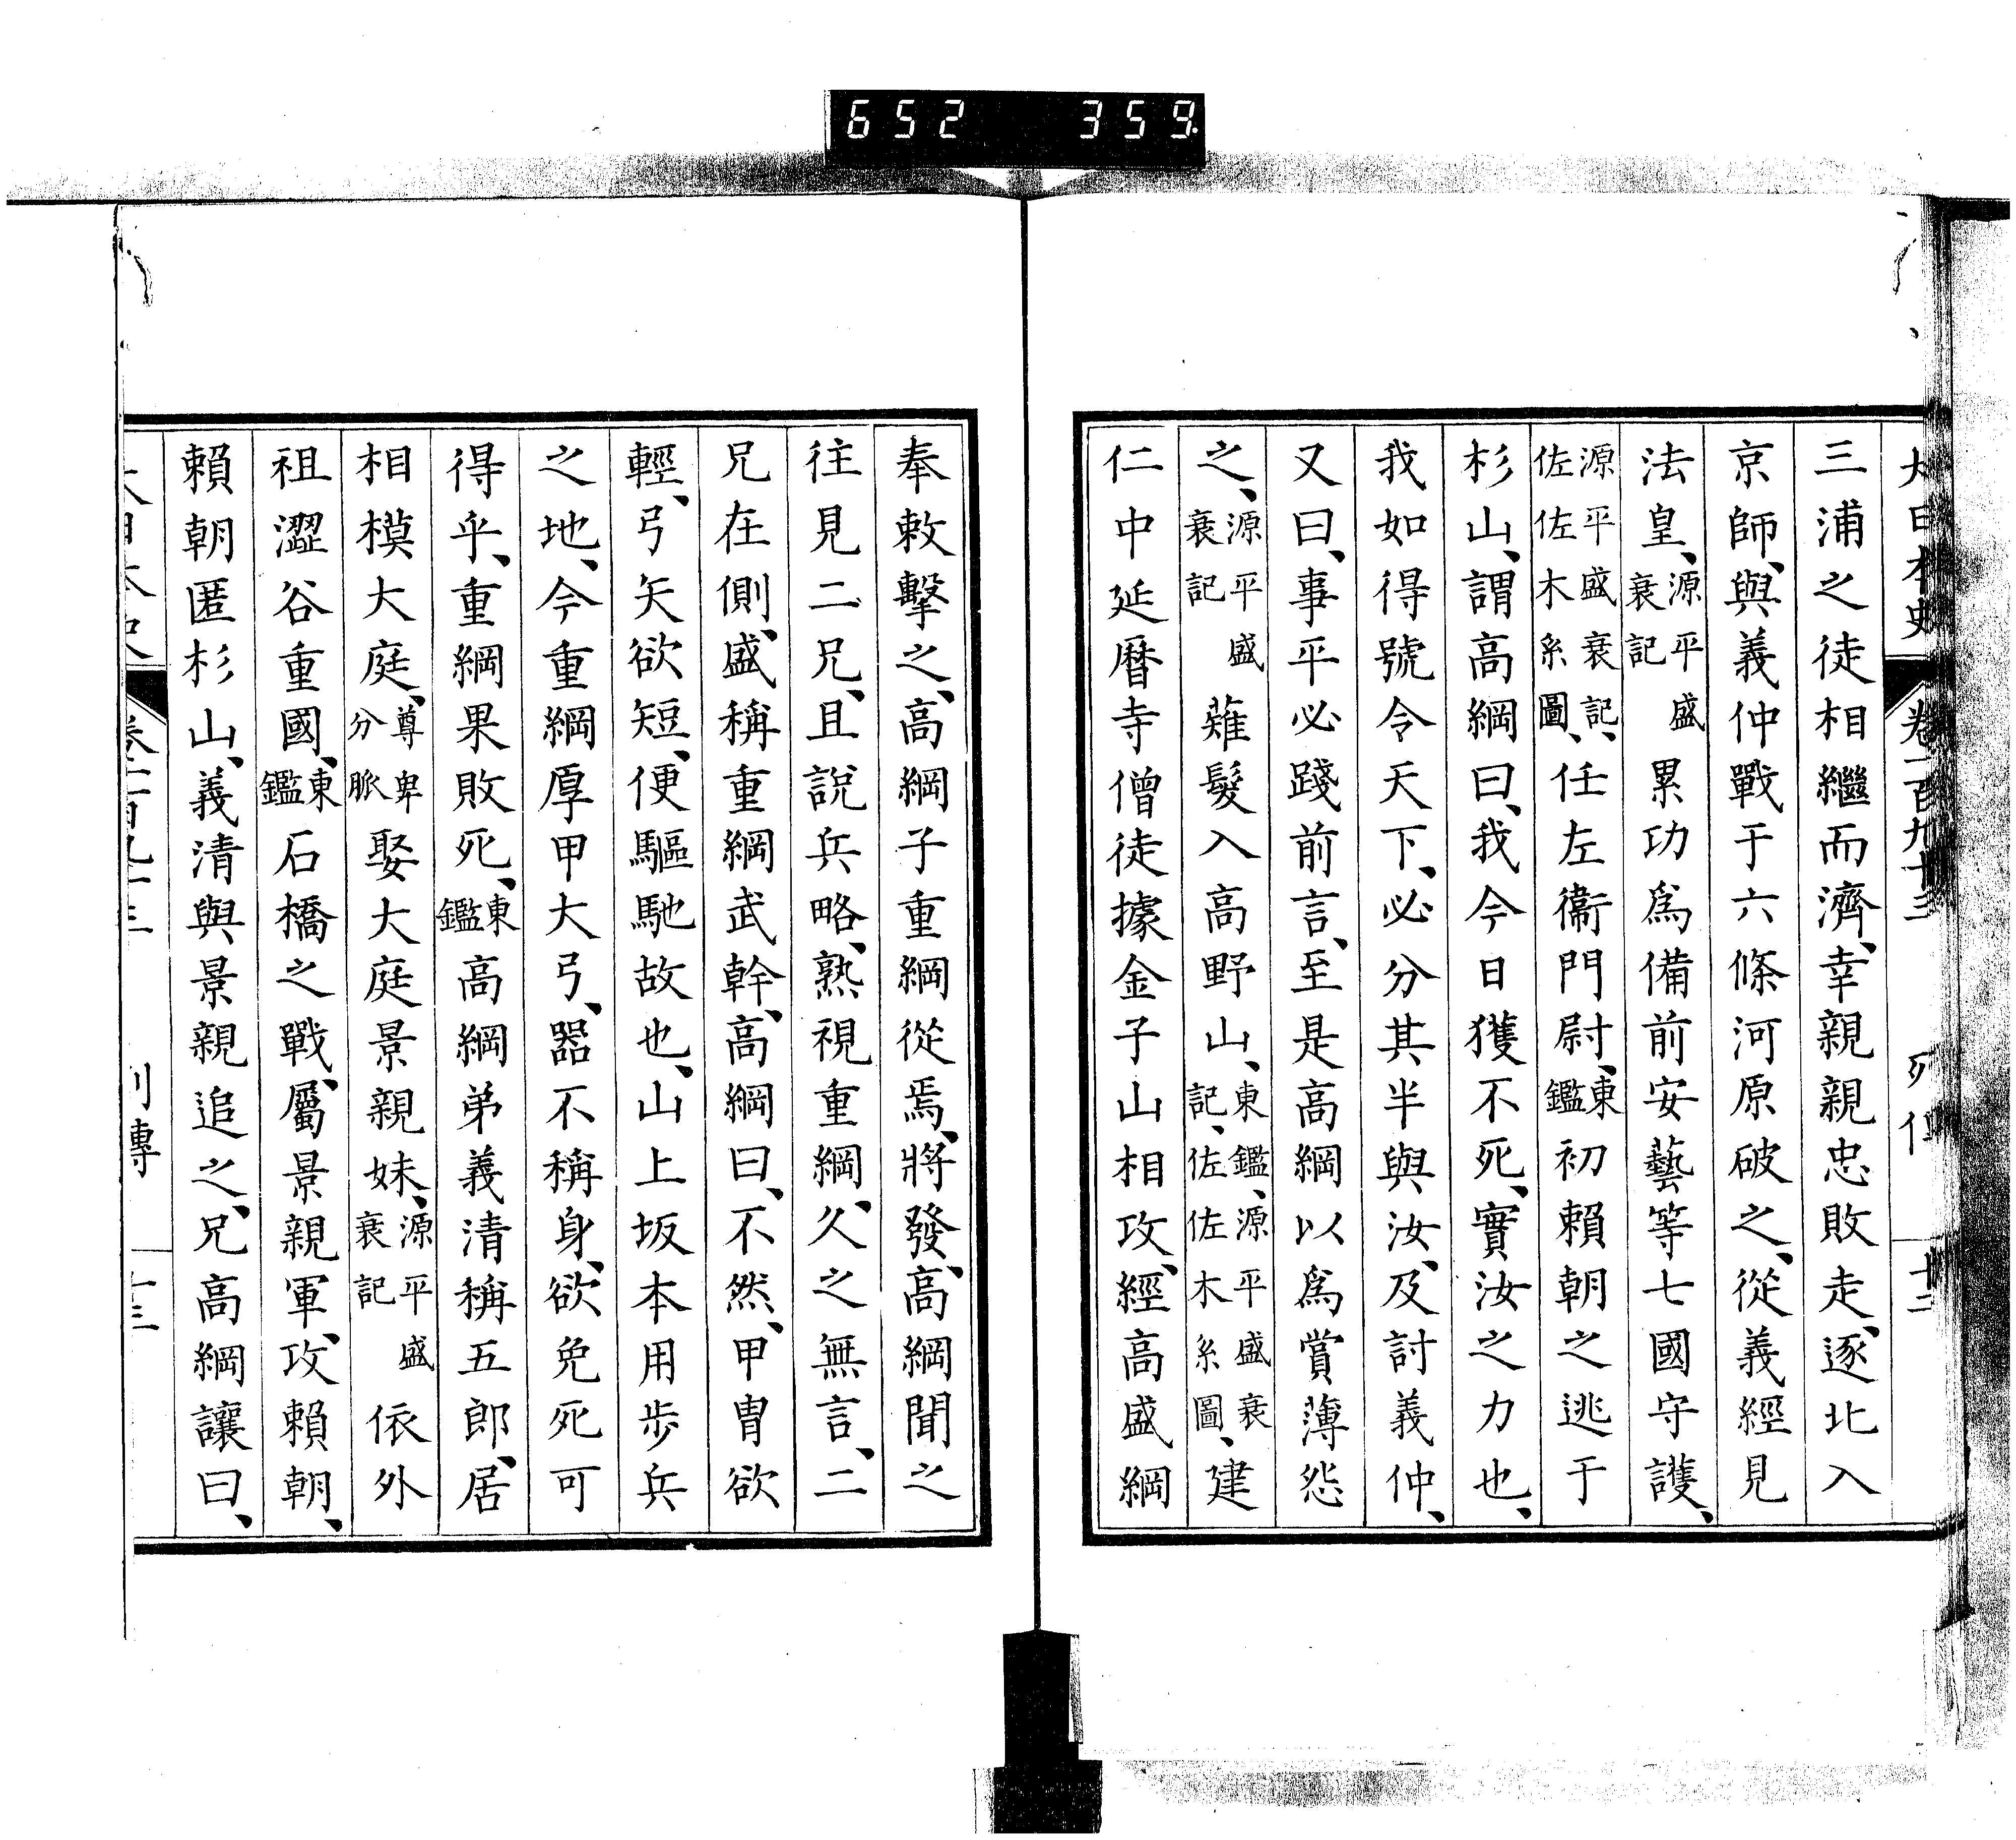 652 359
大日本史 卷一百九十三 列傳 十二
三浦之徒相繼而濟、幸親親忠敗走、逐北入
京師、與義仲戰于六條河原破之、從義經見
法皇、源平盛衰記累功爲備前安藝等七國守護、
源平盛衰記、佐佐木系圖、任左衞門尉、東鑑初賴朝之逃于
杉山、謂高綱曰、我今日獲不死、實汝之力也、
我如得號令天下、必分其半與汝、及討義仲、
又曰、事平必踐前言、至是高綱以爲賞薄怨
之、源平盛衰記薙髮入高野山、東鑑、源平盛衰記、佐佐木系圖、建
仁中延曆寺僧徒據金子山相攻、經高盛綱
奉敕擊之、高綱子重綱從焉、將發、高綱聞之
往見二兄、且說兵略、熟視重綱、久之無言、二
兄在側、盛稱重綱武幹、高綱曰、不然、甲冑欲
輕、弓矢欲短、便驅馳故也、山上坂本用步兵
之地、今重綱厚甲大弓、器不稱身、欲免死可
得乎、重綱果敗死、東鑑高綱弟義清稱五郎、居
相模大庭、尊卑分脈娶大庭景親妹、源平盛衰記依外
祖澀谷重國、東鑑石橋之戰、屬景親軍、攻賴朝、
賴朝匿杉山、義清與景親追之、兄高綱讓曰、
大日本史 卷一百九十三 列傳 十三